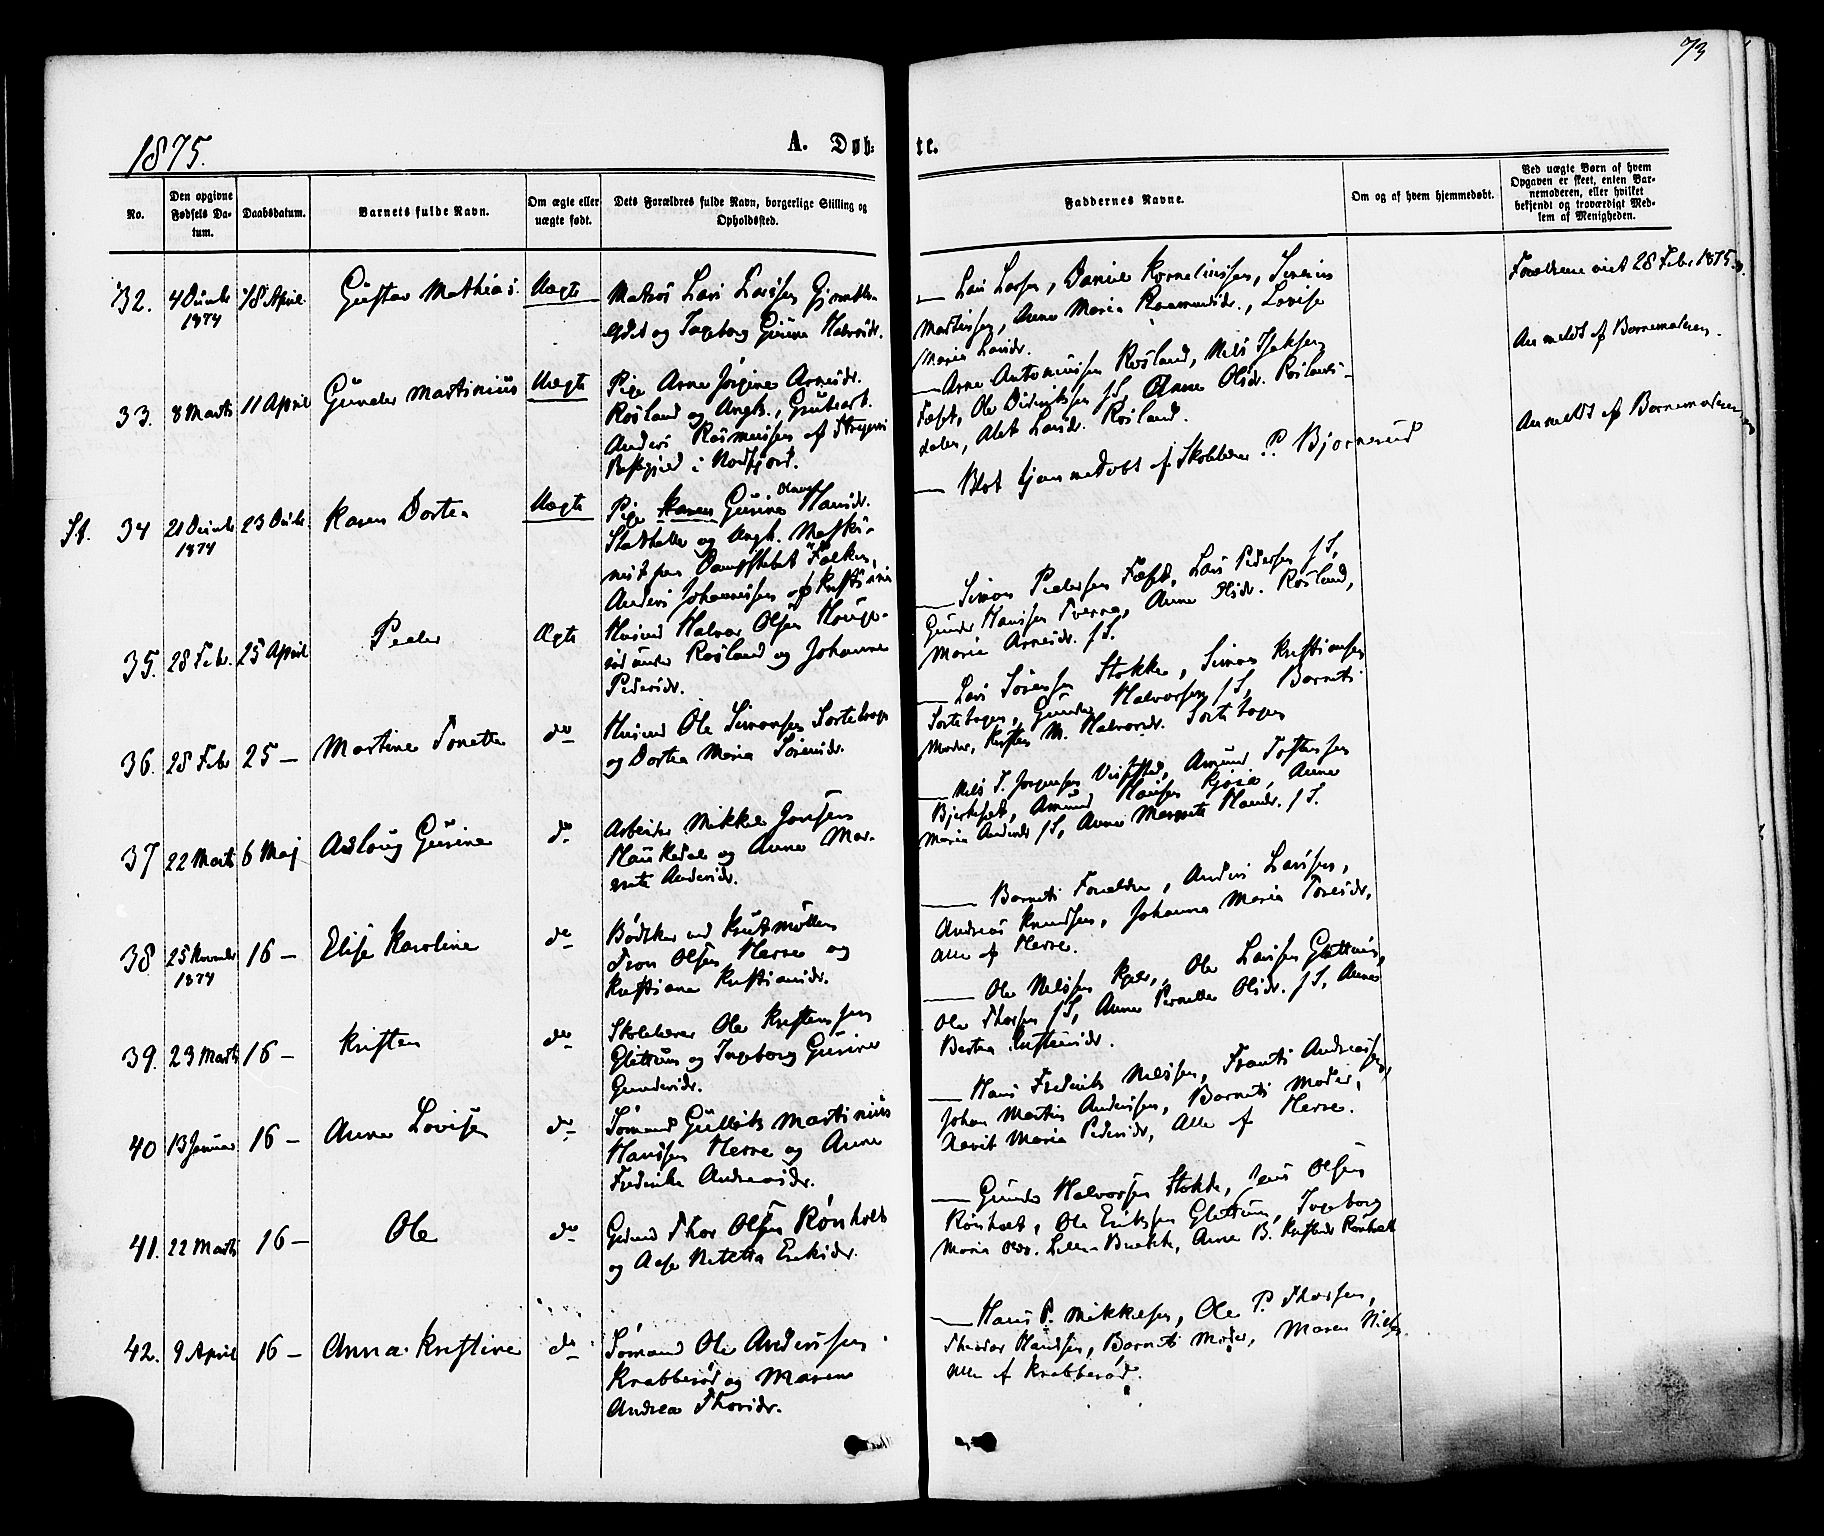 73
1875.
A. Døb-
te.
No.
Den opgivne Fødsels Da-tum.
Daabsdatum.
Barnets fulde Navn.
Om ægte eller uægte født.
Dets Forældres fulde Navn, borgerlige Stilling og Opholdssted.
Faddernes Navne.
Om og af hvem hjemmedøbt.
Ved uægte Børn af hvem Opgaven er skeet, enten Bar-nemoderen, eller hvilket bekjendt og troværdigt Med-lem af Menigheden.
32. 4 1874 18 April Gustav Mathias. Uægte
Matros Lars Larssen
og Ingeborg Gurine Halvorsdr.
— Lars Larsen, Daniel Korneliussen, Severius
Martinssen, Anne Maria Rasmusdr., Lovise
Maria Larsdr.
Forældrene viet 28 Febr 1875
Anmeldt af Barnemoderen.
33. 8 Marts 11 April Gunder Martinius Uægte
Pige Anne Jørgine Arnesdr.
Røsland og Angiv., Grubearb.
Anders Rasmussen af
i Nordfjord.
— Arne Antonissen Røsland, Nils Isaksen
Tæft, Ole Didriksen fS, Anne Olsdr. Røslands-
dalen, Alet Larsdr. Røsland.
Anmeldt af Barnemoderen
St. 34 21 1874 23 Karen Dortea Uægte
Pige Karen Gurine Hansdr.
og Angiv. Maski-
nist paa Dampskibet "Falken,
Anders Johannessen af Kristiania
— Blot hjemmedøbt af Skolelærer P. Bjørnerud
35. 28 Febr. 25 April Peder Ægte
Husmd Halvor Olsen Houge-
rød under Røsland og Johanne
Pedersdr.
— Simon Pedersen Tæft, Lars Pedersen fS,
Gunder Hanssen Tverra, Anne Olsdr. Røsland,
Maria Arnesdr. fS.
36. 28 Febr 25 — Martine Tonette do
Husmd Ole Simonsen Sortebogen
og Dortea Maria Sørensdr.
— Lars Sørensen Stokke, Simon Kristiansen
Sortebogen, Gunder Halvorsen fS, Barnets
Moder, Kirsten M. Halvorsdr. Sortebogen
37 22 Marts 6 Maj Aslaug Gurine do
Arbeider Mikkel Jonsen
Haukedal og Anne Mar-
grete Andersdr.
— Nils T. Jørgensen, Amund Tostensen
Bjerketvet, Amund Hansen, Anne
Maria Andersdr fS, Anne Margrete Hansdr. fS.
38 25 Novembr 1874 16 — Elise Karoline do
Bødker ved Krutmøllen
Tron Olsen Herre og
Kristiane Kristiansdr.
— Barnets Forældre, Anders Larssen,
Andreas Knudsen, Johanna Maria Torsdr,
Alle af Herre.
39. 23 Marts 16 — Kristen do
Skolelærer Ole Kristensen
Glittrum og Ingeborg Gurine
Gundersdr.
— Ole Nelssen Kjær, Ole Larssen Glittrum,
Ole Thorsen fS, Anne Pernelle Olsdr. fS, Anne
Bertea Kristensdr.
40 13 Januar 16 — Anne Lovise do
Sømand Gullik Martinius
Hanssen Herre og Anne
Fredrikke Andreasdr.
— Hans Fredrik Nelssen, Frants Andreassen,
Johan Martin Anderssen, Barnets Moder,
Maria Pedersdr, Alle af Herre.
41. 22 Marts 16 — Ole do
Thor Olsen Rønholt
og Aase Netelia Eriksdr.
— Gunder Halvorsen Stokke, Jens Olsen
Rønholt, Ole Eriksen Glittrum, Ingeborg
Maria, Anne B. Rønholt
42. 9 April 16 — Anna Kristine do
Sømand Ole Anderssen
Krabberød og Maren
Andrea Thorsdr.
— Hans P. Mikkelsen, Ole P. Thorsen,
Theodor Hansen, Barnets Moder, Maren
Alle af Krabberød.